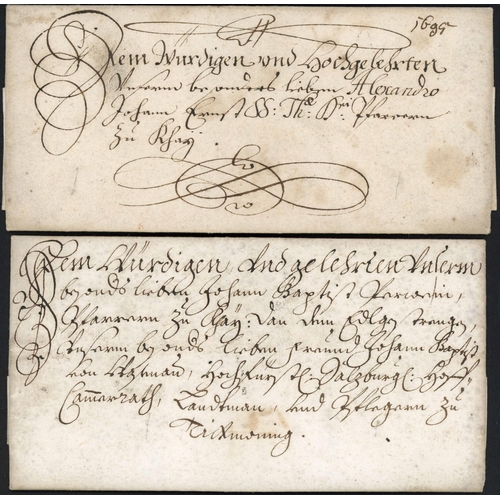 1695
Dem Würdigen und Hochgelehrten
Unserm besonders lieben Alexandro
Johann Ernst SS. Th. Dri Pfarrern
zu Khay
Dem Würdigen, und gelehrten Unserm
besonds lieben Johann Baptist
Pfarrern zu Kay: dan dem Edlgestrengen,
Unserm besonds lieben freund Johann Baptist
von Hochfürstl: Salzburgl: Hoff
Cammerrath, Landtman, und Pflegern zu
Tittmoning.